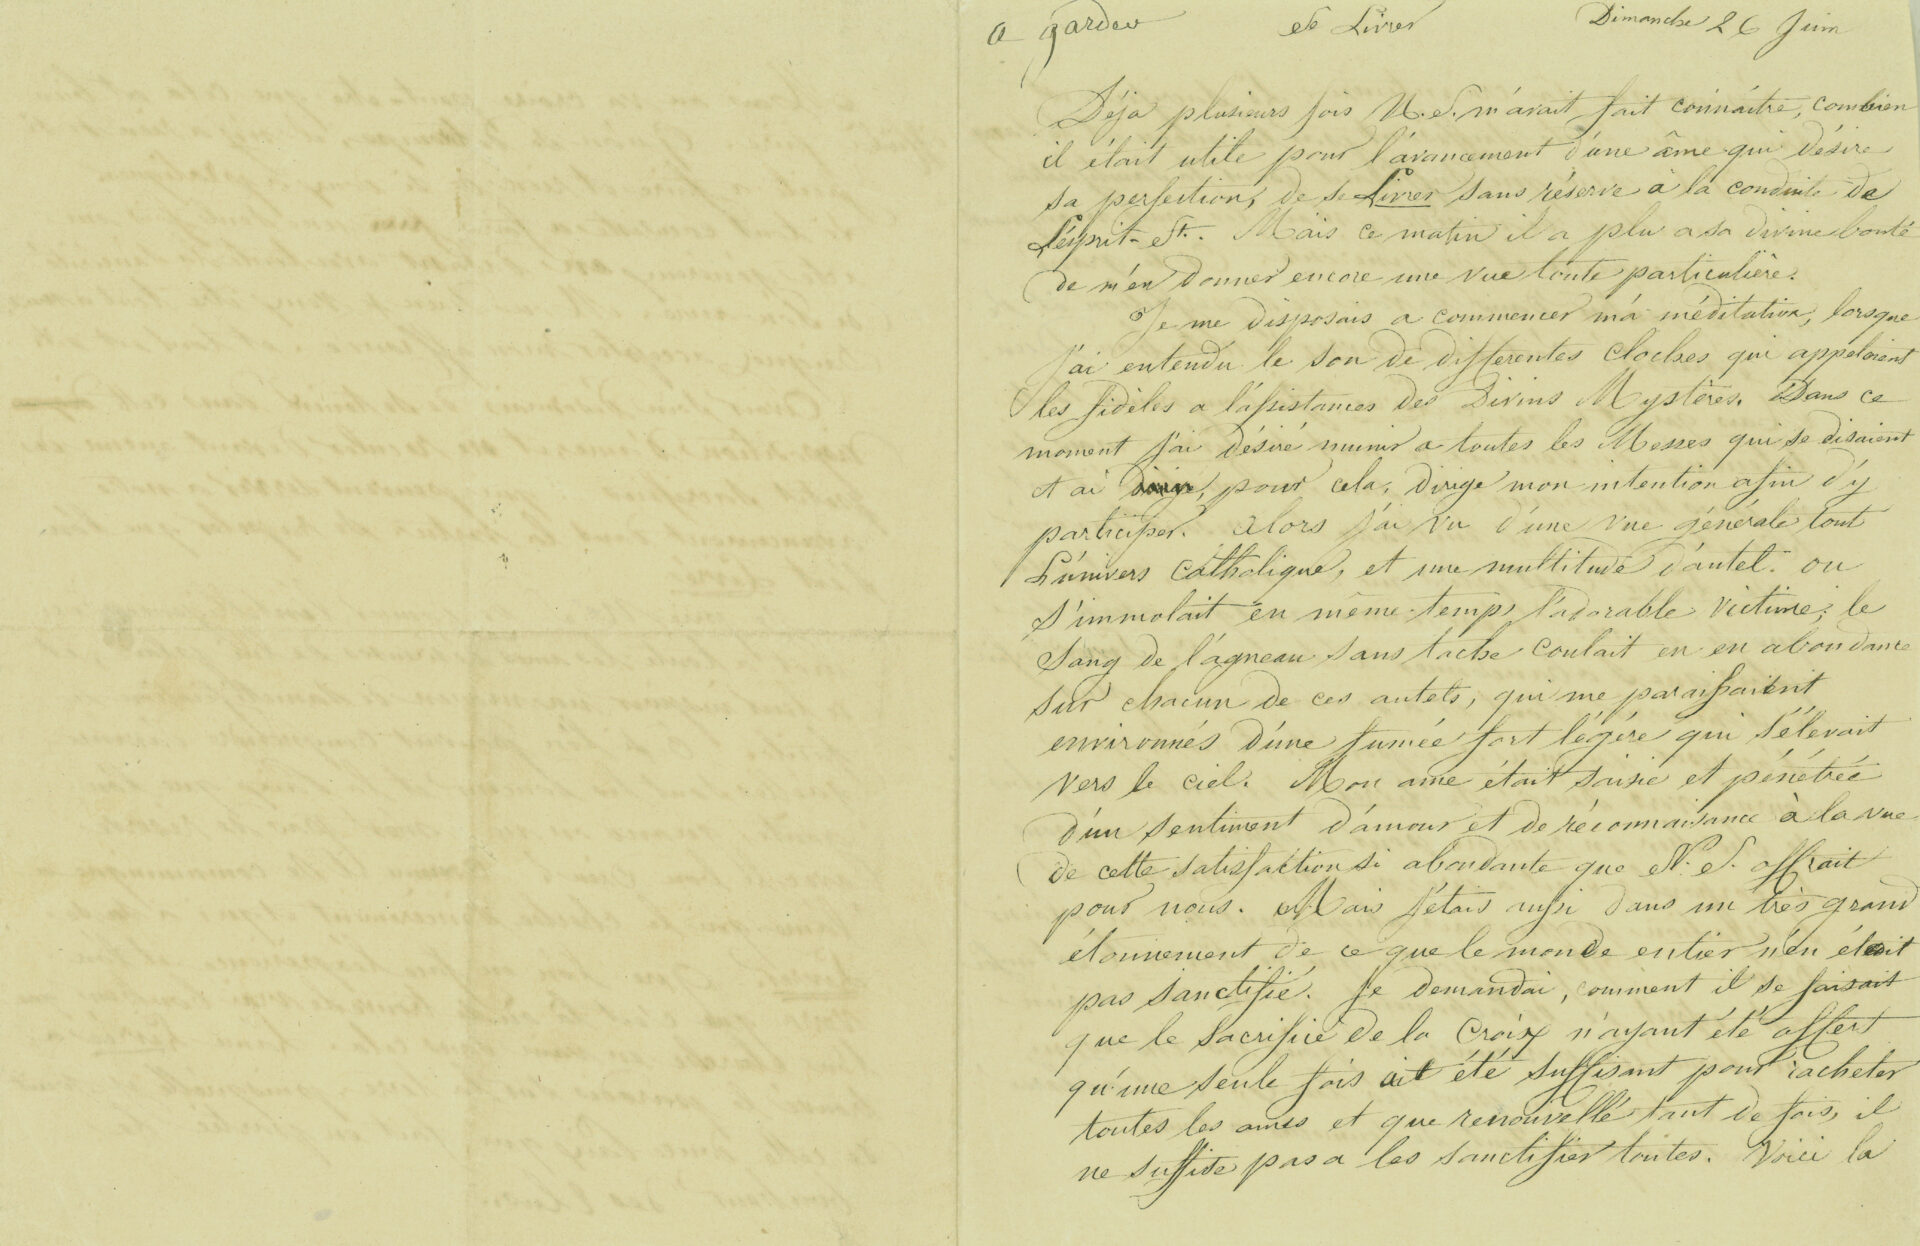 a garder Se Livrer Dimanche 26 Juin
Déja plusieurs fois N.S. m'avait fait connaitre, combien
il était utile pour l'avancement d'une âme qui désire
sa perfection, de se Livrer sans réserve à la conduite de
L'esprit-St. Mais ce matin il a plu a sa divine bonté
de m'en donner encore une vue toute particulière.
Je me disposais a commencer ma méditation, lorsque
j'ai entendu le son de differentes cloches qui appelaient
les fidèles a l'assistances des Divins Mystères. Dans ce
moment j'ai désiré m'unir a toutes les Messes qui se disaient
et ai pour cela, dirigé mon intention afin d'y
participer. Alors j'ai vu d'une vue générale tout
L'univers catholique, et une multitude d'autel. ou
s'immolait en même temps l'adorable victime; le
sang de l'agneau sans tache coulait en en abondance
sur chacun de ces autels, qui me paraissaient
environnés d'une fumée fort légère qui s'élevait
vers le ciel. Mon ame était saisie et pénétrée
d'un sentiment d'amour et de réconnaisance à la vue
de cette satisfaction si abondante que N.S. offrait
pour nous. Mais j'étais aussi dans un très grand
étonnement de ce que le monde entier n'en était
pas sanctifié. Je demandai, comment il se faisait
que le sacrifice de la Croix n'ayant été offert
qu'une seule fois ait été suffisant pour racheter
toutes les ames et que renouvellé tant de fois, il
ne suffise pas a les sanctifier toutes. Voici la